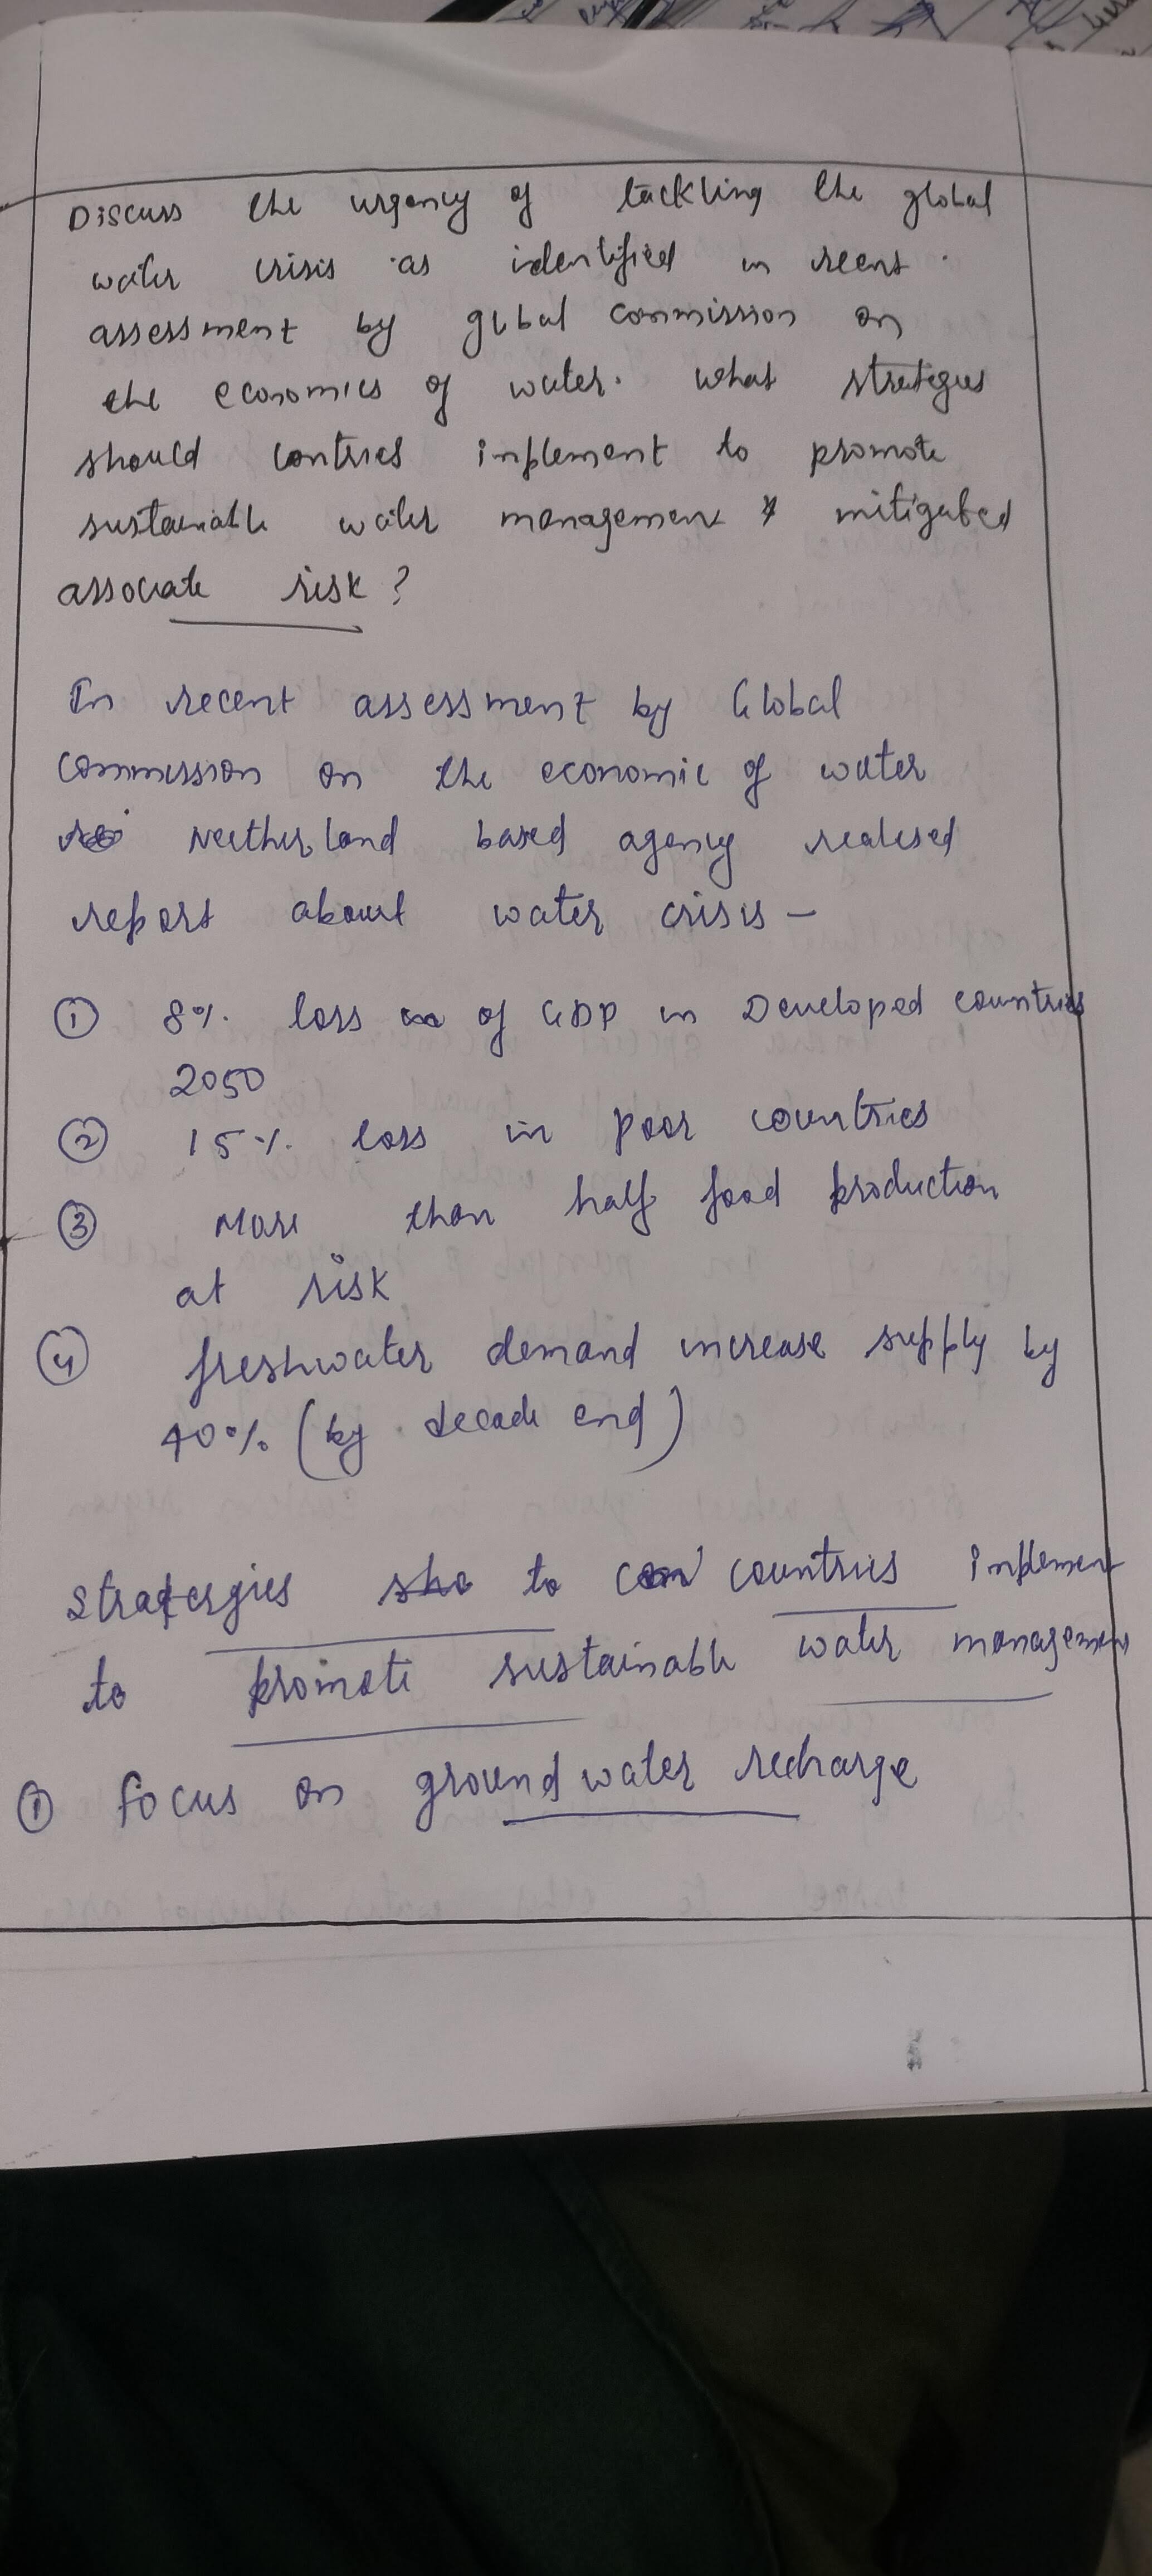 Discuss the urgency of tackling the global
water crisis as identified in recent
assessment by global commission on
the economics of water. what strategies
should contries implement to promote
sustainable water management & mitigated
associate risk?
In recent assessment by Global
Commission on the economic of water
Neitherland based agency realesed
report about water crisis –
① 8% loss of GDP in Developed countries
2050
② 15% loss in poor countries
③ More than half food production
at risk
④ freshwater demand increase supply by
40% (by decade end)
Stratergies to countries implement
to promote sustainable water management
① focus on groundwater recharge